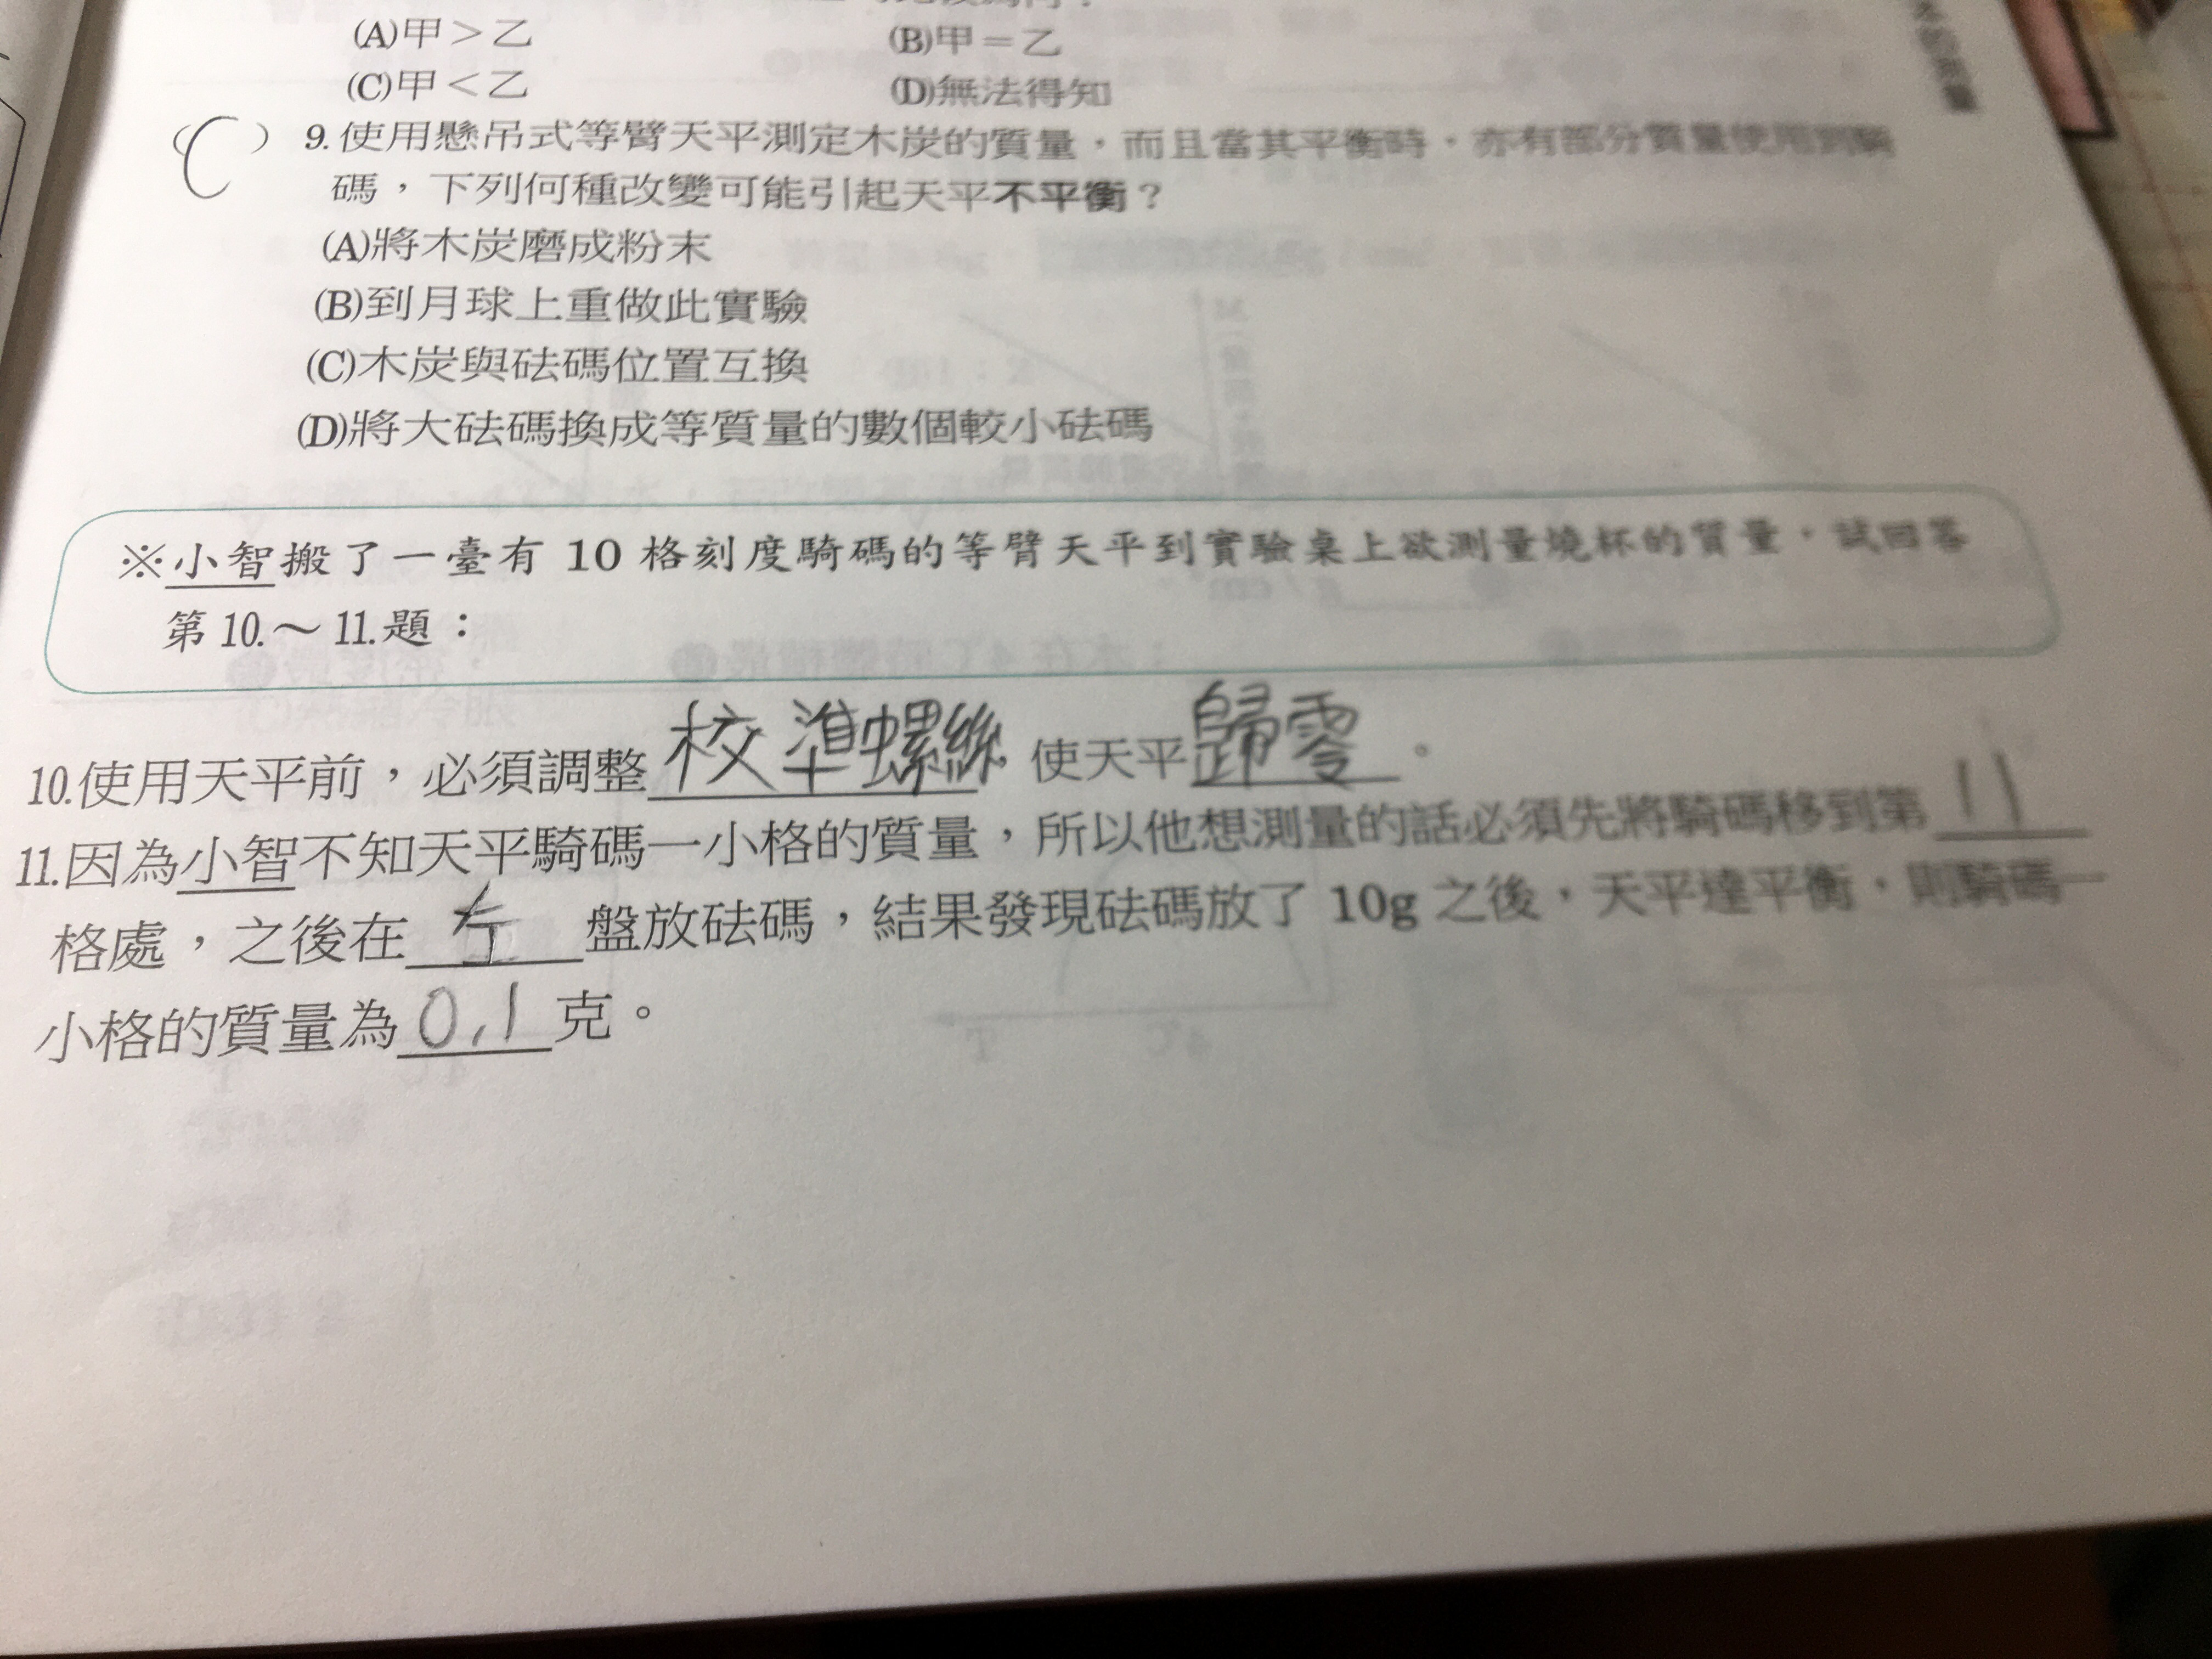 (A)甲＞乙 (B)甲＝乙
(C)甲＜乙 (D)無法得知
(C) 9.使用懸吊式等臂天平測定木炭的質量，而且當其平衡時，亦有部分質量使用到騎
碼，下列何種改變可能引起天平不平衡？
(A)將木炭磨成粉末
(B)到月球上重做此實驗
(C)木炭與砝碼位置互換
(D)將大砝碼換成等質量的數個較小砝碼
※小智搬了一臺有 10 格刻度騎碼的等臂天平到實驗桌上欲測量燒杯的質量，試回答
第 10.～11.題：
10.使用天平前，必須調整校準螺絲使天平歸零。
11.因為小智不知天平騎碼一小格的質量，所以他想測量的話必須先將騎碼移到第11
格處，之後在左盤放砝碼，結果發現砝碼放了 10g 之後，天平達平衡，則騎碼一
小格的質量為0.1克。